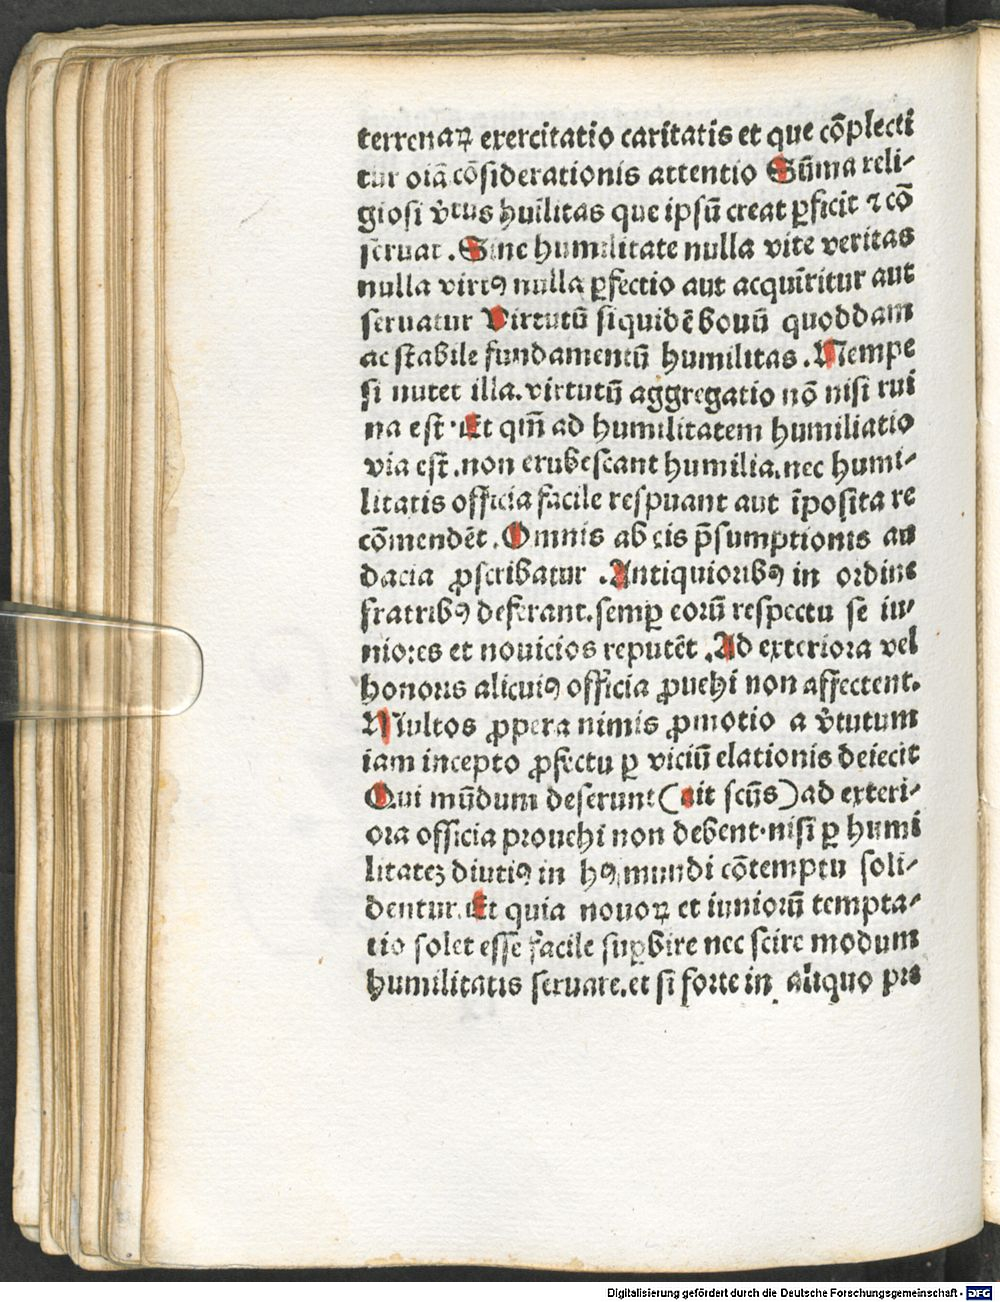 terrenaꝝ exercitatio caritatis et que cōplecti
tur oiā cōsiderationis attentio Sūma reli-
giosi v̄tus huīlitas que ipsū creat ꝑficit ⁊ cō
seruat . Sine humilitate nulla vite veritas
nulla virtꝰ nulla ꝑfectio aut acquīritur aut
seruatur Virtutū siquidē bouū quoddam
ac stabile fundamentū humilitas . Nempe
si nutet illa. virtutū aggregatio nō nisi rui
na est · Et qm̄ ad humilitatem humiliatio
via est . non erubescant humilia. nec humi-
litatis officia facile respuant aut īposita re
cōmendēt . Omnis ab eis p̄sumptionis au
dacia ꝓscribatur . Antiquioribꝰ in ordine
fratribꝰ deferant. semꝑ eorū respectu se iu-
niores et nouicios reputēt . Ad exteriora vel
honoris alicuiꝰ officia ꝓuehi non affectent.
Multos ꝓpera nimis ꝓmotio a v̄tutum
iam incepto ꝓfectu ꝑ viciū elationis deiecit
Qui mūdum deserunt (ait scūs) ad exteri-
ora officia prouehi non debent· nisi ꝑ humi
litatez diutiꝰ in hꝰ mundi cōtemptu soli-
dentur. Et quia nouoꝝ et iuniorū tempta-
tio solet esse facile suꝑbire nec scire modum
humilitatis seruare. et si forte in aliquo pro
Digitalisierung gefördert durch die Deutsche Forschungsgemeinschaft - DFG